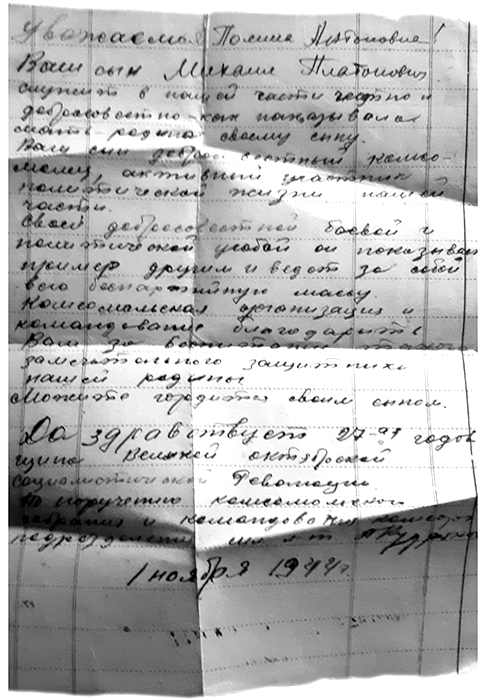 Уважаемая Полина Антоновна!
Ваш сын Михаил Платонович
служит в нашей части честно и
добросовестно как показывала
мать родина своему сыну.
Ваш сын добросовестный комсо-
молец, активный участник
политической жизни нашей
части.
Своей добросовестной боевой и
политической учебой он показывает
пример другим и ведет за собой
всю беспартийную массу
Комсомольская организация и
командование благодарит
Вам за воспитание такого
замечательного защитника
нашей родины
Можете гордится своим сыном.
Да здравствует 27-ая годов
щина Великой октябрской
социалистической Революции
По поручению комсомольского
собрания и командования
подразделения
1 ноября 1944г.